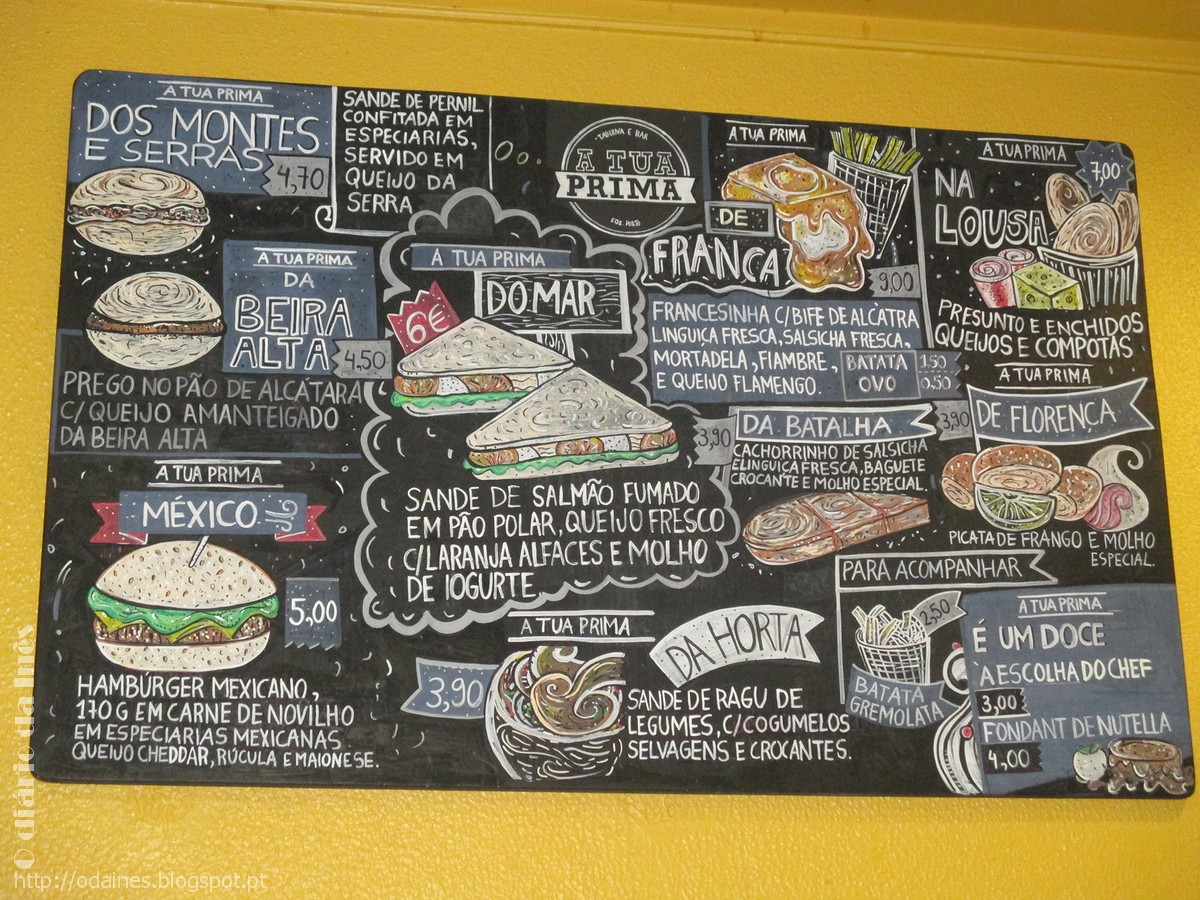 A TUA PRIMA
DOS MONTES
E SERRAS
4,70
SANDE DE PERNIL
CONFITADA EM
ESPECIARIAS,
SERVIDO EM
QUEIJO DA
SERRA
TABERNA E BAR
A TUA
PRIMA
FOZ. PORTO
A TUA PRIMA
DE
FRANÇA
9,00
FRANCESINHA C/BIFE DE ALCATRA
LINGUIÇA FRESCA, SALSICHA FRESCA,
MORTADELA, FIAMBRE,
E QUEIJO FLAMENGO.
BATATA 1.50
OVO 0.50
A TUA PRIMA
7,00
NA
LOUSA
PRESUNTO E ENCHIDOS
QUEIJOS E COMPOTAS
A TUA PRIMA
DA
BEIRA
ALTA
4,50
PREGO NO PÃO DE ALCÁTARA
C/ QUEIJO AMANTEIGADO
DA BEIRA ALTA
A TUA PRIMA
DO MAR
6€
SANDE DE SALMÃO FUMADO
EM PÃO POLAR, QUEIJO FRESCO
C/LARANJA ALFACES E MOLHO
DE IOGURTE.
3,90
DA BATALHA
CACHORRINHO DE SALSICHA
E LINGUIÇA FRESCA, BAGUETE
CROCANTE E MOLHO ESPECIAL.
A TUA PRIMA
3,90
DE FLORENÇA
PICATA DE FRANGO E MOLHO
ESPECIAL.
A TUA PRIMA
MÉXICO
5,00
HAMBÚRGER MEXICANO,
170 G EM CARNE DE NOVILHO
EM ESPECIARIAS MEXICANAS
QUEIJO CHEDDAR, RÚCULA E MAIONESE.
A TUA PRIMA
DA HORTA
3,90
SANDE DE RAGU DE
LEGUMES, C/COGUMELOS
SELVAGENS E CROCANTES.
PARA ACOMPANHAR
2,50
BATATA
GREMOLATA
A TUA PRIMA
É UM DOCE
À ESCOLHA DO CHEF
3,00
FONDANT DE NUTELLA
4,00
© o diário da Inês
http://odaines.blogspot.pt